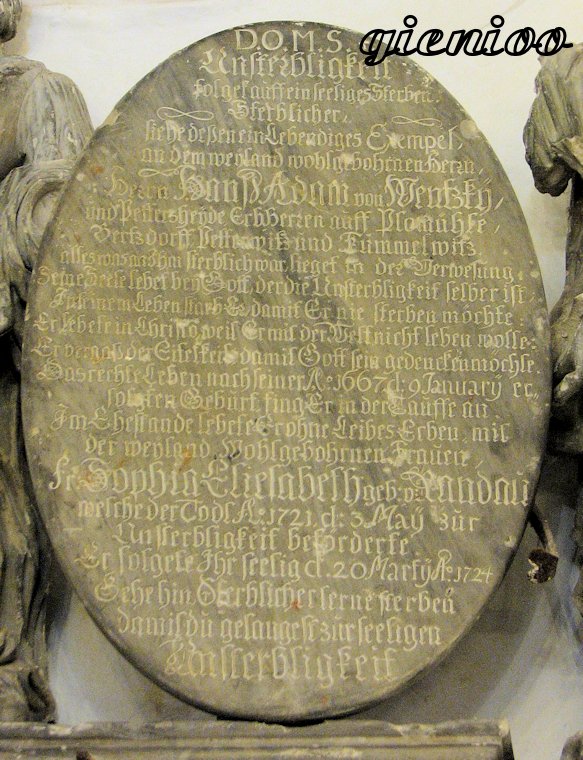 D.O.M.S.
gienioo
Unsterbligkeit
folget auff ein seeliges Sterben.
Sterblicher,
siehe deßen ein Lebendiges Exempel,
an dem weyland wohlgebohrnen Herrn,
Herrn Hanß Adam von Wentzky,
und Petersheyde Erbherren auff Plomühle,
Bertzdorff, Petterwitz und Tümmelwitz
alles was an Ihm sterblich war, lieget in der Verwesung,
Seine Seele lebet bey Gott, der die Unsterbligkeit selber ist
In seinem Leben starb Er damit Er nie sterben möchte
Er lebete in Christo, weil Er mit der Welt nicht leben wolte:
Er vergaß der Eitelkeit, damit Gott sein gedencken möchte
Das rechte Leben nach seiner A: 1667 d: 9 January er-
folgten Geburt, fing Er in der Tauffe an
Im Ehestande lebete Er ohne Leibes Erben, mit
der weyland, Wohlgebohrnen Frauen,
Fr. Sophia Eliesabeth geb: v. Randau
welche der Tod A: 1721 d: 3 May zur
Unsterbligkeit beförderte
Er folgete Ihr seelig d. 20 Marty A: 1724
Gehe hin, Sterblicher lerne sterben
damit du gelangest zur seeligen
Unsterbligkeit